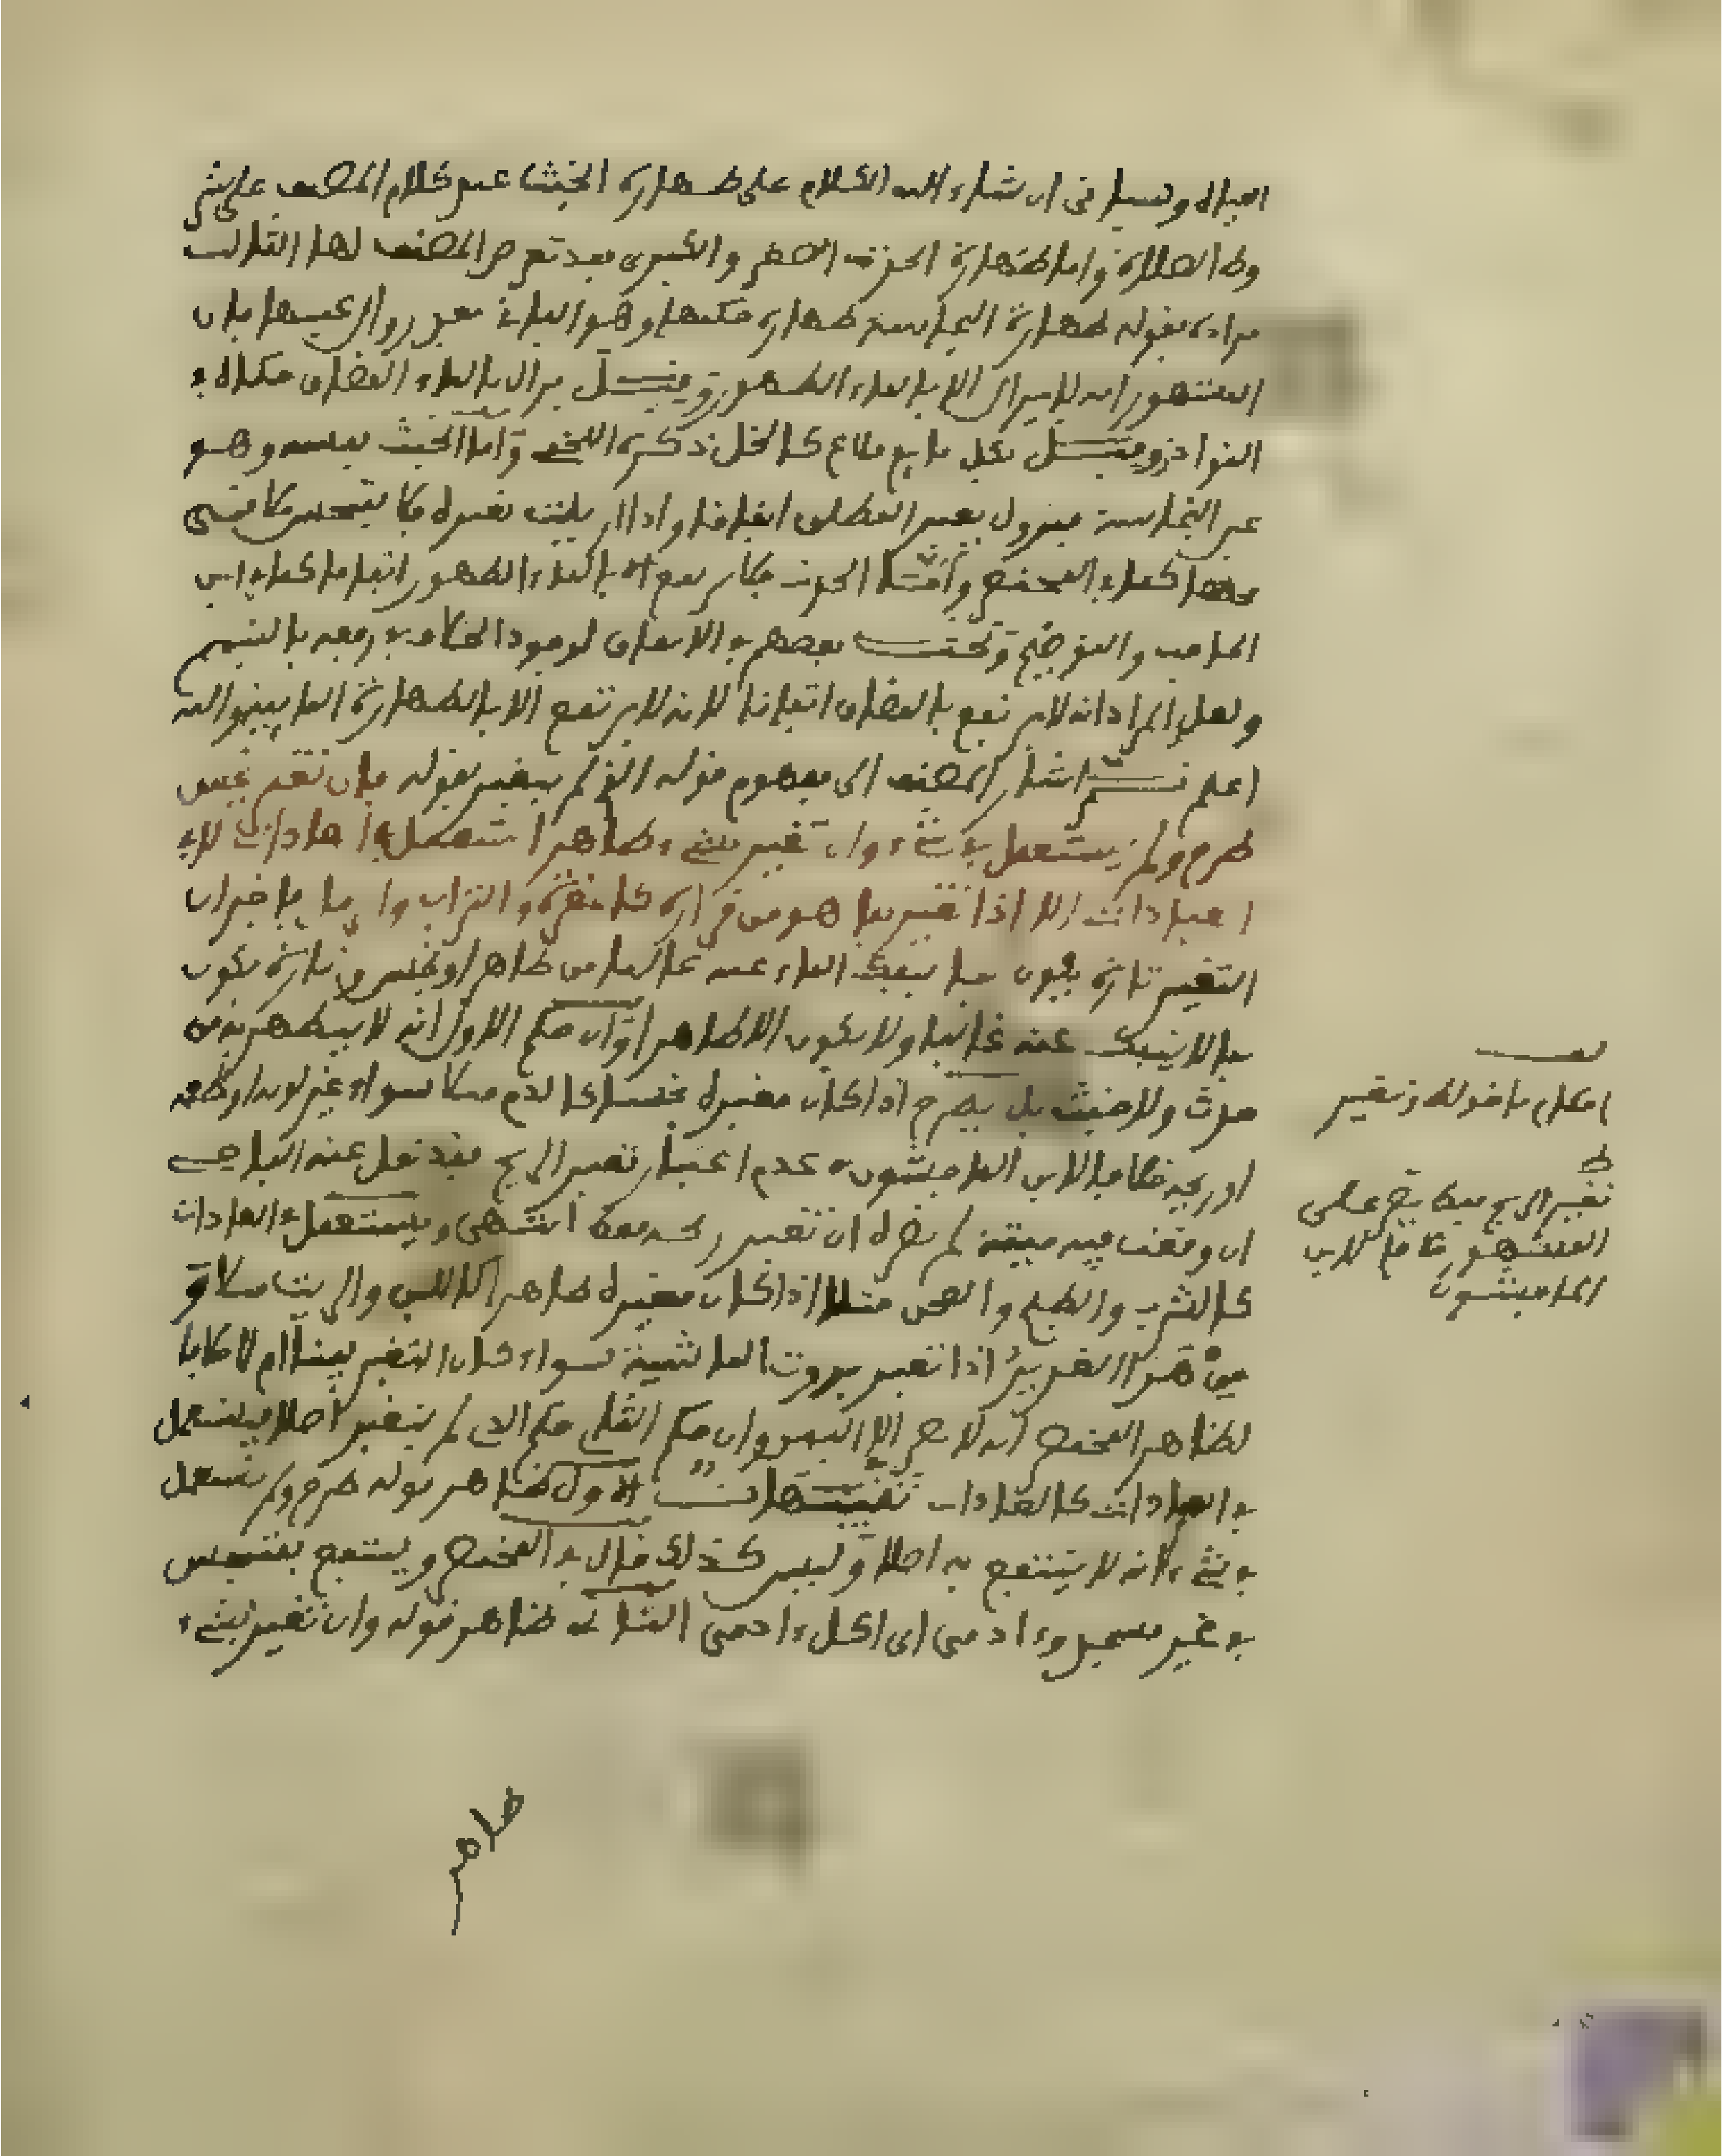 المياه وسياتى ان شاء الله الكلام على طهارة الخبث عند كلام المصنف على شر
وط الصلاة واما طهارة الحدث الصغرى والكبرى فقد تعرض المصنف لها الثالث
مراده بقوله طهارة النجاسة طهارة حكمها وهو الباقى بعد زوال عينها فان
المشهور انه لا يزال الا بالماء الطهور وقيل يزال بالماء المضاف حكاه في
النوادر وقيل بكل مايع قلاع كالخل ذكره اللخمي واما الخبث نفسه وهو
عين النجاسة فيزول بغير المطلق اتفاقا
منها كماء المختصر واما الحدث فلا يرفع الا بالماء الطهور اتفاقا كما في ابن
الحاجب والتوضيح وبحث بعضهم في الاتفاق لوجود الخلاف في رفعه بالتيمم
ولعل المراد انه لا يرتفع بالمضاف اتفاقا لانه لا يرتفع الا بالطهارة المايية والله
اعلم ثم اشار المصنف الى مفهوم قوله الذي لم يتغير بقوله فان تغير بنجس
طرح ولم يستعمل في شيء وان تغير بشيء طاهر استعمل في العادات لا في
العبادات الا اذا تغير بما هو من قراره كالمغرة والتراب واخبر ان
التغير تارة يكون بما ينفك الماء عنه غالبا من طاهر او نجس وتارة يكون
بما لا ينفك عنه غالبا ولا يكون الا طاهرا وان حكم الاول انه لا يتطهر به من
حدث ولا خبث بل يطرح اذا كان مغيره نجسا كالدم مثلا سواء غير لونه او طعمه
او ريحه خلافا لابن الماجشون في عدم اعتبار تغير الريح فقد نقل عنه الباجي
ان وقعت فيه ميتة لم يضره ان تغير ريحه فقط انتهى ويستعمل في العادات
كالشرب والطبخ والعجن مثلا اذا كان مغيره طاهرا كاللبن والزيت مثلا و
من هذا الضرب اذا تغير بروث الماشية سواء كان التغير بينا ام لا خلافا
لظاهر المختصر وان حكم الثاني حكم الذي لم يتغير اصلا فيستعمل
في العبادات كالعادات تنبيهات الاول ظاهر قوله طرح ولم يستعمل
في شيء انه لا ينتفع به اصلا وليس كذلك قال في المختصر وينتفع بمتنجس
في غير مسجد وءادمي اي اكل ءادمي الثاني ظاهر قوله وان تغير بشيء
طاهر
تغير
تغير الريح على
المشهور خلافا لابن
الماجشون